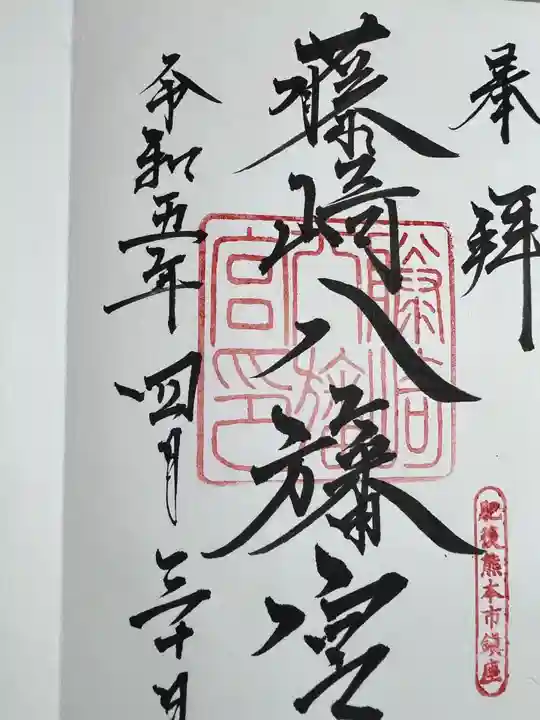 奉拝
藤崎八旛宮
令和五年四月三十日
藤崎八旛宮印
肥後熊本市鎮座